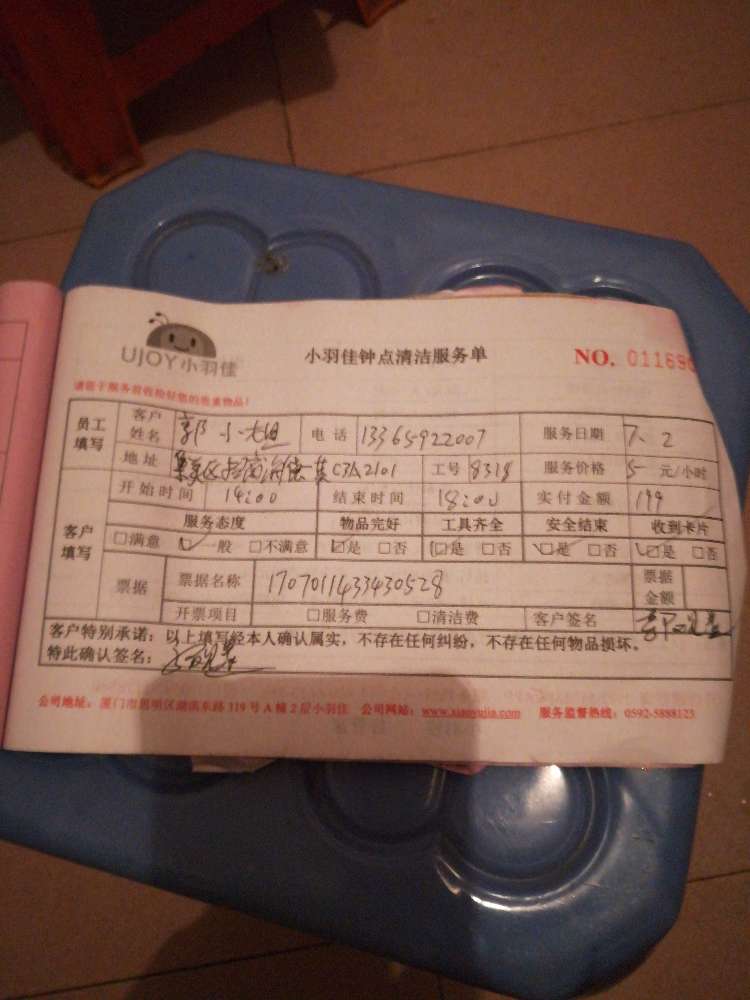 UJOY小羽佳
小羽佳钟点清洁服务单
NO. 011696
请您于服务前收捡好您的贵重物品!
员工填写 客户姓名 郭小姐 电话 13365922007 服务日期 7、2
地址 集美区 C3A2101 工号 8318 服务价格 5 元/小时
开始时间 14:00 结束时间 18:00 实付金额 199
客户填写 服务态度 物品完好 工具齐全 安全结束 收到卡片
□满意 □一般 □不满意 □是 □否 □是 □否 □是 □否 □是 □否
票据 票据名称 1707011433430528 票据金额
开票项目 □服务费 □清洁费 客户签名
客户特别承诺:以上填写经本人确认属实,不存在任何纠纷,不存在任何物品损坏。
特此确认签名:
公司地址:厦门市思明区湖滨东路319号A幢2层小羽佳 公司网站:www.xiaoyujia.com 服务监督热线:0592-5888123